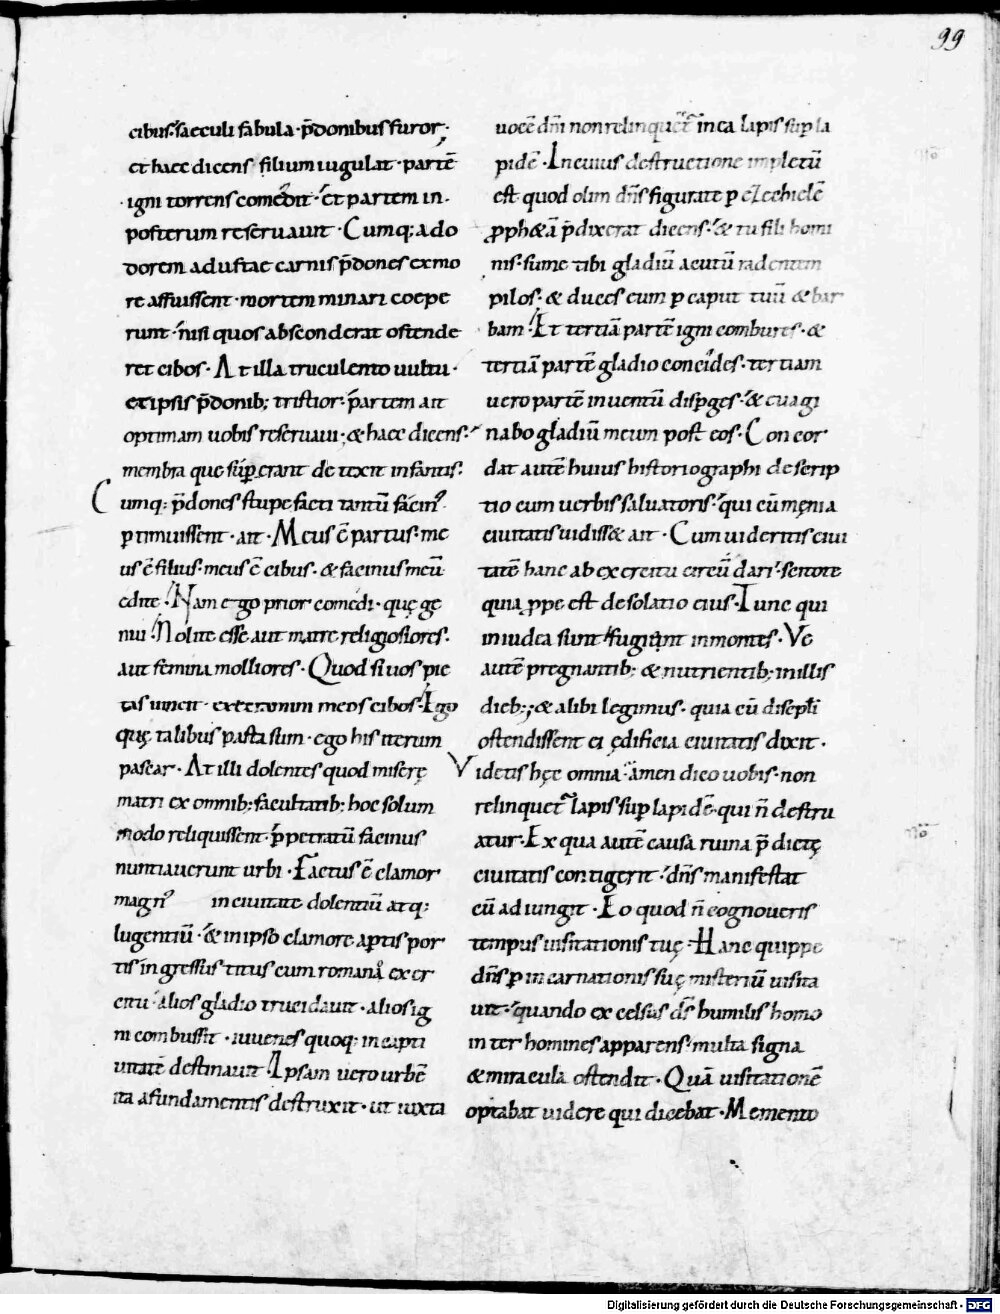 99
cibus. saeculi fabula. p̄donibus furor;
et haec dicens filium iugulat. partē
igni torrens comedit. et partem in
posterum reseruauit. Cumq; ado
dorem adustae carnis p̄dones ex mo
re affuissent. mortem minari coepe
runt. nisi quos absconderat ostende
ret cibos. At illa truculento uultu.
et ipsis p̄donib; tristior. partem ait
optimam uobis reseruaui; & haec dicens.
membra que sup̱erant detexit infantis.
Cumq; p̄dones stupefacti tantū facin᾽
ptimuissent. ait. Meus ē partus. me
us ē filius. meus ē cibus. & facinus meū
edite. Nam ergo prior comedi. quę ge
nui. Nolite esse aut matre religiosiores.
aut femina molliores. Quod si uos pie
tas uincit. Ego
quę talibus pasta sum. ego his iterum
pascar. At illi dolentes quod miserę
matri ex omnib; facultatib; hoc solum
modo reliquissent. ppetratū facinus
nuntiauerunt urbi. Factus ē clamor
magn᾽ in ciuitate dolentiū atq;
lugentiū. & in ipso clamore aptis por
tis ingressus titus cum romano exer
citu. alios gladio trucidauit. alios ig
ni combussit. iuuenes quoq; in capti
uitatē destinauit. Ipsam uero urbē
ita a fundamentis destruxit. ut iuxta
uocē dn̄i non relinqueret᷑ in ea lapis sup la
pidē. In cuius destructione impletū
est quod olim dn̄s figurate p ezechielē
pph&ā p̄dixerat dicens. & tu fili homi
nis. sume tibi gladiū acutū radentem
pilos. & duces eum p caput tuū & bar
bam. Et tertiā partē igni combures. &
tertiā partē gladio concides. tertiam
uero partē in uentū dispges. & euagi
nabo gladiū meum post eos. Concor
dat autē huius historiographi descrip
tio cum uerbis saluatoris. qui cū męnia
ciuitatis uidiss& ait. Cum uideritis ciui
tatē hanc ab exercitu circū dari. scitote
quia ppe est desolatio eius. Tunc qui
in iudea sunt fugiant in montes. Ve
autē pregnantib; & nutrientib; in illis
dieb;; & alibi legimus. quia cū discipli
ostendissent ei ędificia ciuitatis dixit.
Videtis hęc omnia. amen dico uobis. non
relinquet᷑ lapis sup lapidē. qui n̄ destru
atur. Ex qua autē causa ruina p̄dictę
ciuitatis contigerit. dn̄s manifestat
cū adiungit. Eo quod n̄ cognoueris
tempus uisitationis tuę. Hanc quippe
dn̄s p incarnationis suę misteriū uisita
uit. quando excelsus ds̄ humilis homo
inter homines apparens. multa signa
& miracula ostendit. Quā uisitationē
optabat uidere qui dicebat. Memento
Digitalisierung gefördert durch die Deutsche Forschungsgemeinschaft - DFG